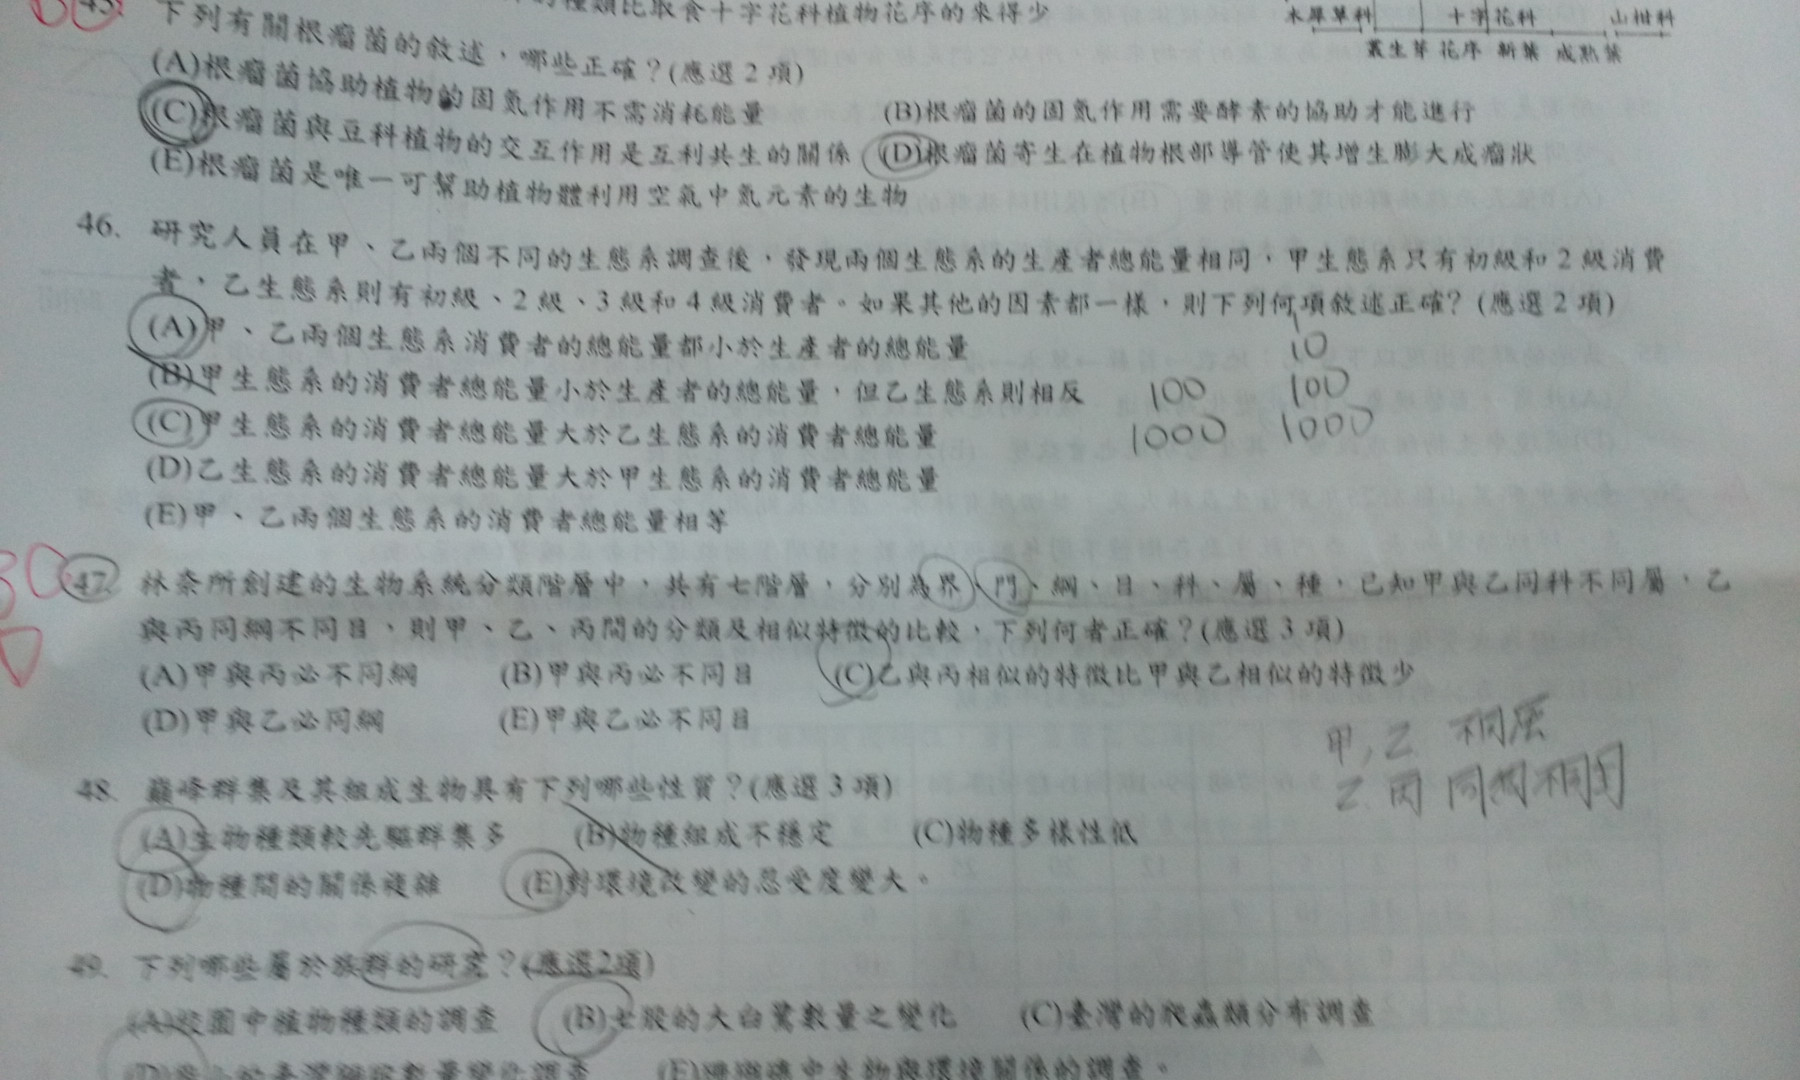 種類比取食十字花科植物花序的來得少
木犀草科 十字花科 山柑科
叢生芽 花序 新葉 成熟葉
45. 下列有關根瘤菌的敘述，哪些正確？(應選 2 項)
(A)根瘤菌協助植物的固氮作用不需消耗能量 (B)根瘤菌的固氮作用需要酵素的協助才能進行
(C)根瘤菌與豆科植物的交互作用是互利共生的關係 (D)根瘤菌寄生在植物根部導管使其增生膨大成瘤狀
(E)根瘤菌是唯一可幫助植物體利用空氣中氮元素的生物
46. 研究人員在甲、乙兩個不同的生態系調查後，發現兩個生態系的生產者總能量相同，甲生態系只有初級和 2 級消費
者，乙生態系則有初級、2 級、3 級和 4 級消費者。如果其他的因素都一樣，則下列何項敘述正確？(應選 2 項)
(A)甲、乙兩個生態系消費者的總能量都小於生產者的總能量
(B)甲生態系的消費者總能量小於生產者的總能量，但乙生態系則相反
(C)甲生態系的消費者總能量大於乙生態系的消費者總能量
(D)乙生態系的消費者總能量大於甲生態系的消費者總能量
(E)甲、乙兩個生態系的消費者總能量相等
1
10
100 100
1000 1000
47. 林奈所創建的生物系統分類階層中，共有七階層，分別為界、門、綱、目、科、屬、種，已知甲與乙同科不同屬，乙
與丙同綱不同目，則甲、乙、丙間的分類及相似特徵的比較，下列何者正確？(應選 3 項)
(A)甲與丙必不同綱 (B)甲與丙必不同目 (C)乙與丙相似的特徵比甲與乙相似的特徵少
(D)甲與乙必同綱 (E)甲與乙必不同目
甲,乙 不同
乙 丙 同 不同目
48. 巔峰群集及其組成生物具有下列哪些性質？(應選 3 項)
(A)生物種類較先驅群集多 (B)物種組成不穩定 (C)物種多樣性低
(D)物種間的關係複雜 (E)對環境改變的忍受度變大。
49. 下列哪些屬於族群的研究？(應選2項)
(A)校園中植物種類的調查 (B)七股的大白鷺數量之變化 (C)臺灣的爬蟲類分布調查
數量變化調查 (E)珊瑚礁中生物與環境關係的調查。